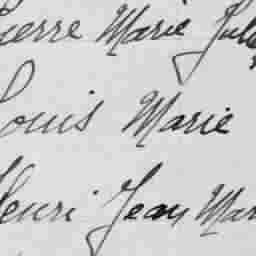 Pierre Marie Jules
Louis Marie
Henri Jean Mar